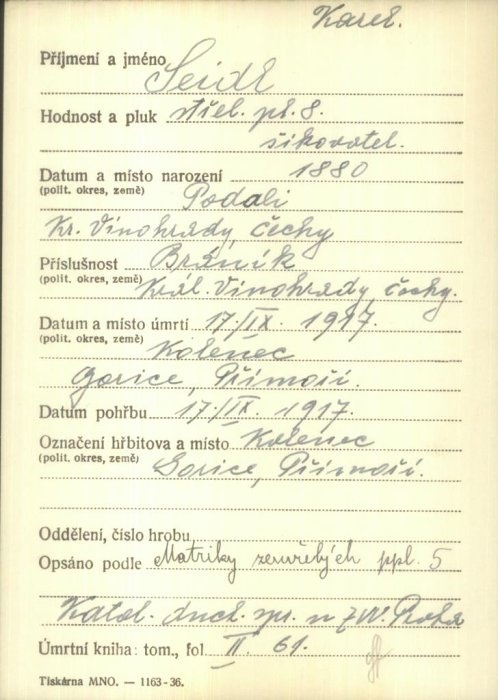 Karel.
Příjmení a jméno Seidl
Hodnost a pluk střel. pl. 8.
šikovatel.
Datum a místo narození 1880
(polit. okres, země) Podalí
Kr. Vinohrady, čechy
Příslušnost Bráník
(polit. okres, země) Král. Vinohrady, čechy.
Datum a místo úmrtí 17./IX. 1917.
(polit. okres, země) Kolenec
Gorice, Přímoří.
Datum pohřbu 17./IX. 1917.
Označení hřbitova a místo Kolenec
(polit. okres, země) Gorice, Přímoří.
Oddělení, číslo hrobu
Opsáno podle Matriky zemřelých ppl. 5
Katol. duch. spr. u ZVV. Praha
Úmrtní kniha: tom., fol II. 61.
Tiskárna MNO. — 1163-36.